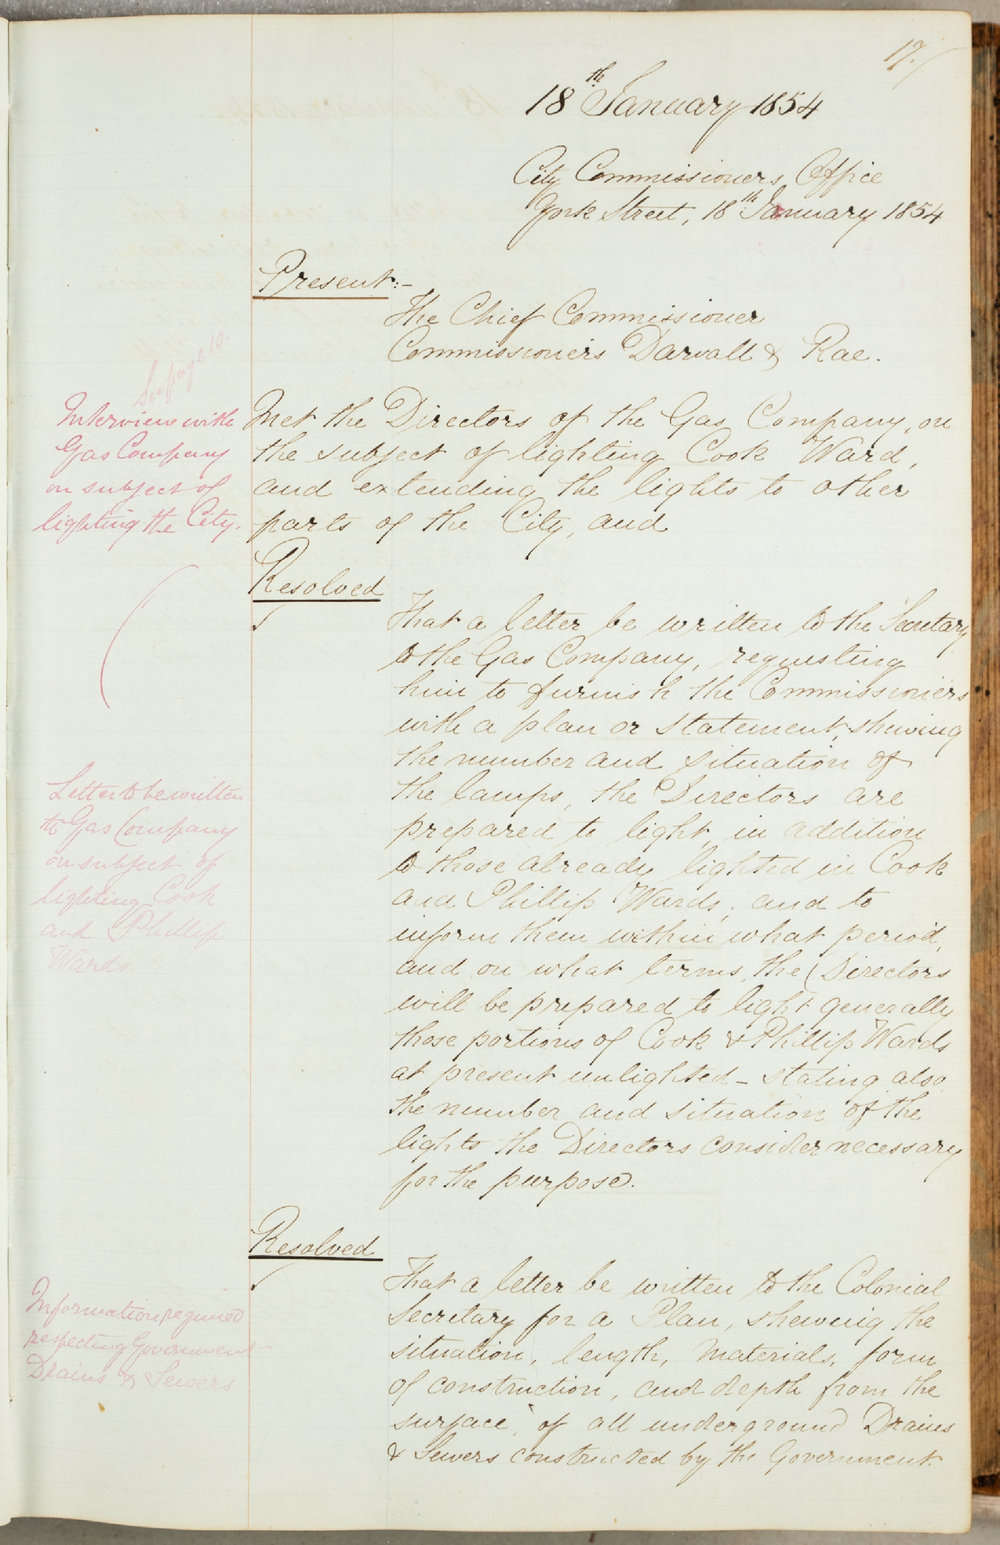 17.
18th January 1854
City Commissioners Office
York Street, 18th January 1854
Present:-
The Chief Commissioner
Commissioners Darvall & Rae.
See page 10.
Interview with
Gas Company
on subject of
lighting the City.
Met the Directors of the Gas Company, on
the subject of lighting Cook Ward,
and extending the lights to other
parts of the City, and
Resolved
That a letter be written to the Secretary
to the Gas Company, requesting
him to furnish the Commissioners
with a plan or statement, shewing
the number and situation of
the lamps, the Directors are
prepared to light, in addition
to those already lighted in Cook
and Phillip Wards, and to
inform them within what period,
and on what terms, the Directors
will be prepared to light generally
those portions of Cook & Phillip Wards
at present unlighted - stating also
the number and situation of the
lights the Directors consider necessary
for the purpose.
Letter to be written
to Gas Company
on subject of
lighting Cook
and Phillip
Wards.
Resolved
That a letter be written to the Colonial
Secretary for a Plan, shewing the
situation, length, materials, form
of construction, and depth from the
surface, of all underground Drains
& Sewers constructed by the Government.
Information required
respecting Government
Drains & Sewers